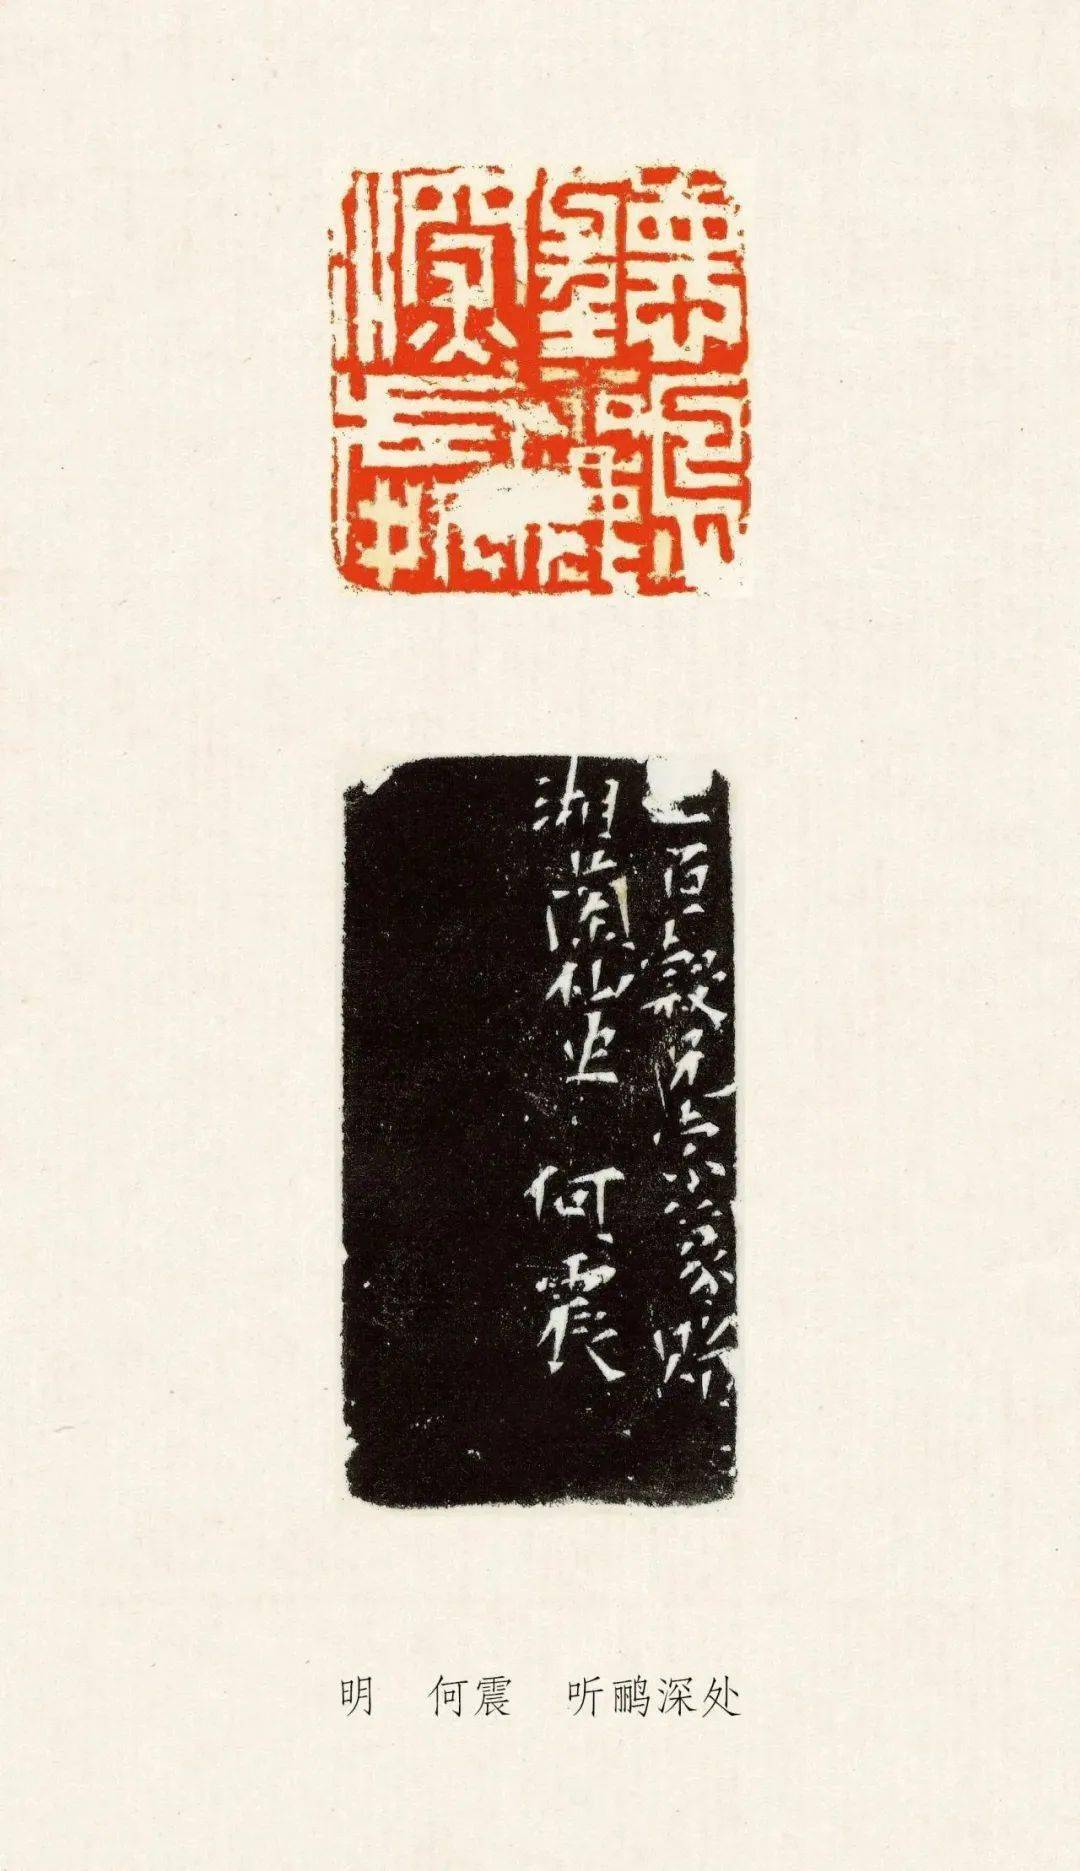 聽鸝
深處
百穀兄索篆贈
湘蘭仙史 何震
明 何震 听鹂深处